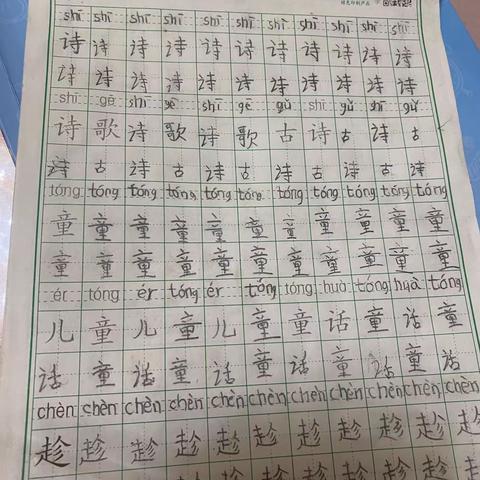 绿色印刷产品
shī shī shī shī shī shī shī shī shī shī shī
诗 诗 诗 诗 诗 诗 诗 诗 诗 诗 诗
诗 诗 诗 诗 诗 诗 诗 诗 诗 诗 诗
shī gē shī gē shī gē gǔ shī gǔ shī gǔ
诗 歌 诗 歌 诗 歌 古 诗 古 诗 古
诗 古 诗 古 诗 古 诗 古 诗 古 诗
tóng tóng tóng tóng tóng tóng tóng tóng tóng tóng tóng
童 童 童 童 童 童 童 童 童 童 童
童 童 童 童 童 童 童 童 童 童 童
ér tóng ér tóng ér tóng tóng huà tóng huà tóng
儿 童 儿 童 儿 童 童 话 童 话 童
话 童 话 童 话 童 话 童 话 童 话
chèn chèn chèn chèn chèn chèn chèn chèn chèn chèn chèn
趁 趁 趁 趁 趁 趁 趁 趁 趁 趁 趁